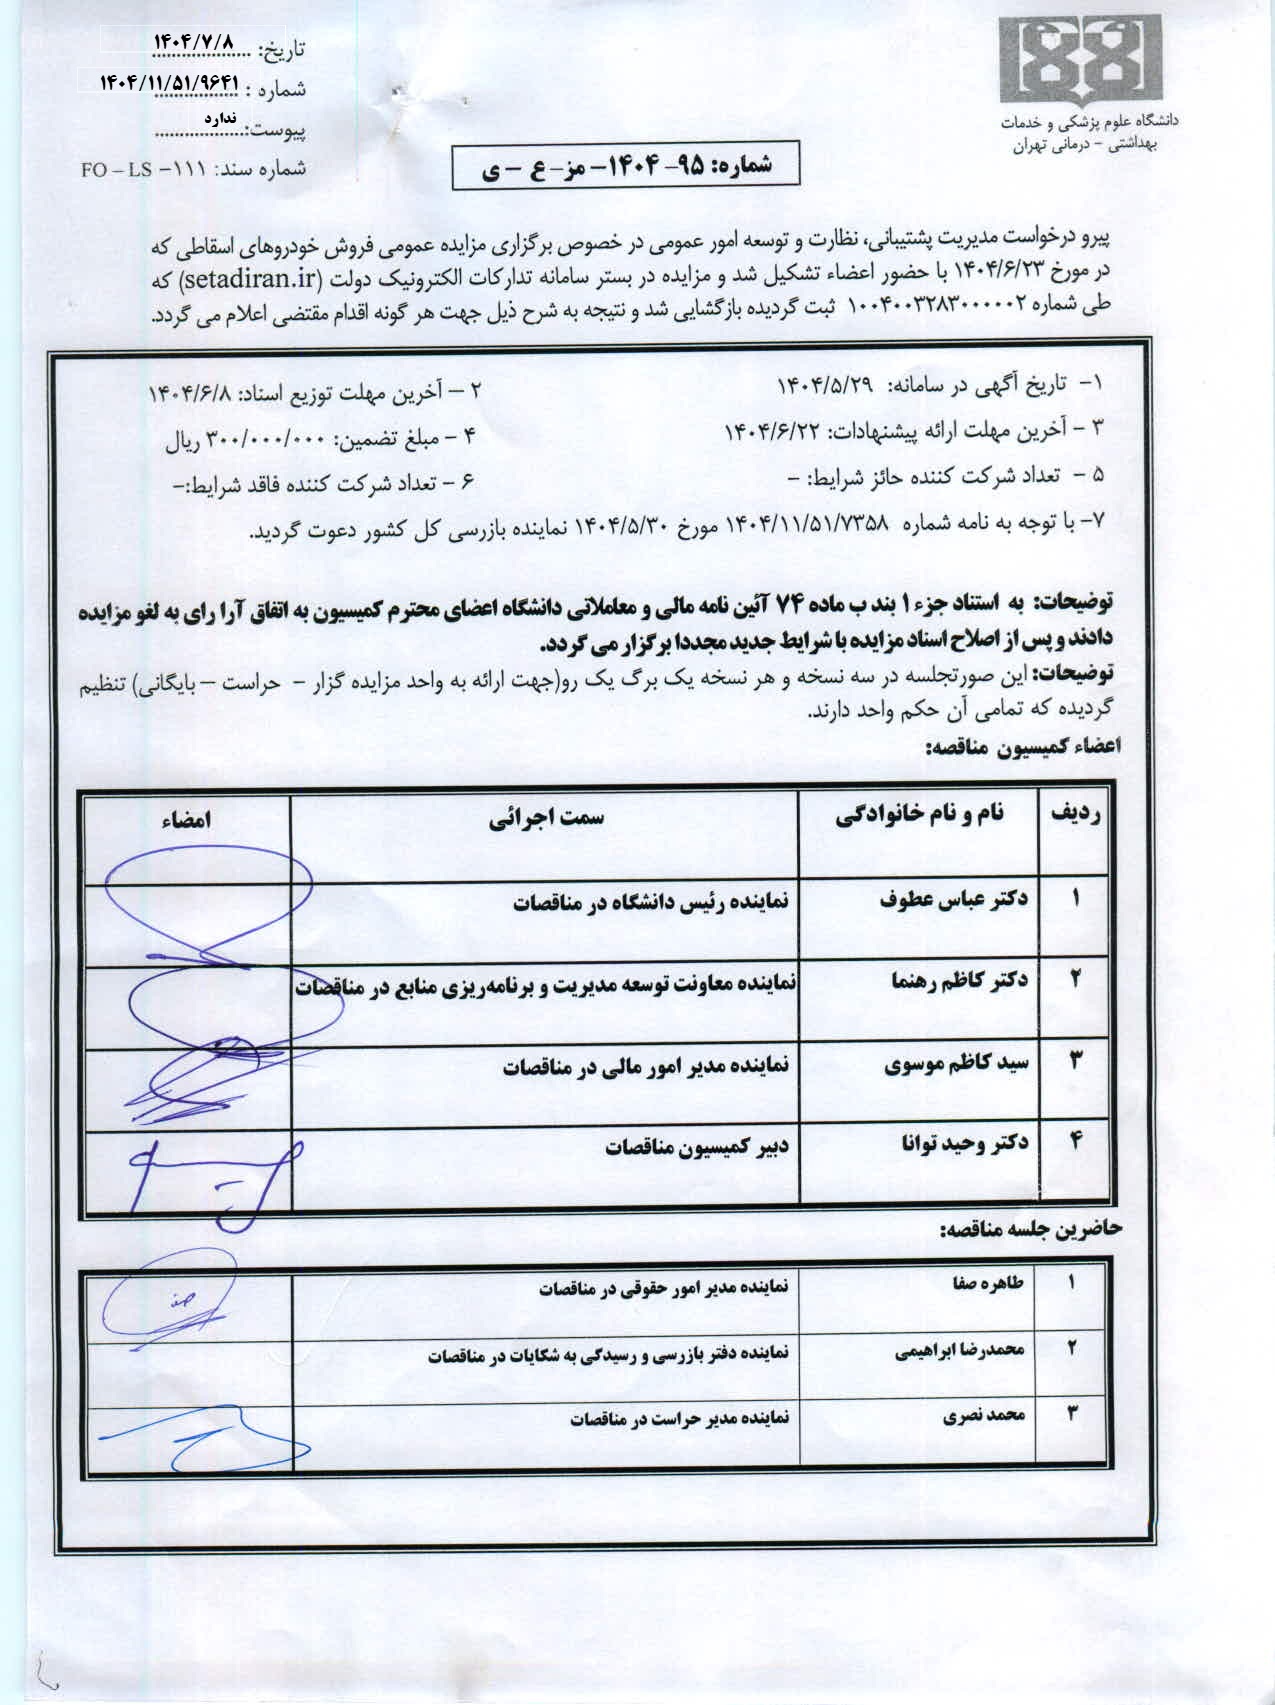 تاریخ: ۱۴۰۴/۷/۸
شماره : ۱۴۰۴/۱۱/۵۱/۹۶۴۱
پیوست: ندارد
شماره سند: FO – LS – ۱۱۱
دانشگاه علوم پزشکی و خدمات
بهداشتی – درمانی تهران
شماره: ۹۵- ۱۴۰۴- مز- ع – ی
پیرو درخواست مدیریت پشتیبانی، نظارت و توسعه امور عمومی در خصوص برگزاری مزایده عمومی فروش خودروهای اسقاطی که
در مورخ ۱۴۰۴/۶/۲۳ با حضور اعضاء تشکیل شد و مزایده در بستر سامانه تدارکات الکترونیک دولت (setadiran.ir) که
طی شماره ۱۰۰۴۰۰۳۲۸۳۰۰۰۰۰۲ ثبت گردیده بازگشایی شد و نتیجه به شرح ذیل جهت هر گونه اقدام مقتضی اعلام می گردد.
۱- تاریخ آگهی در سامانه: ۱۴۰۴/۵/۲۹
۲ – آخرین مهلت توزیع اسناد: ۱۴۰۴/۶/۸
۳ – آخرین مهلت ارائه پیشنهادات: ۱۴۰۴/۶/۲۲
۴ – مبلغ تضمین: ۳۰۰/۰۰۰/۰۰۰ ریال
۵ – تعداد شرکت کننده حائز شرایط: –
۶ – تعداد شرکت کننده فاقد شرایط:–
۷- با توجه به نامه شماره ۱۴۰۴/۱۱/۵۱/۷۳۵۸ مورخ ۱۴۰۴/۵/۳۰ نماینده بازرسی کل کشور دعوت گردید.
توضیحات: به استناد جزء ۱ بند ب ماده ۷۴ آئین نامه مالی و معاملاتی دانشگاه اعضای محترم کمیسیون به اتفاق آرا رای به لغو مزایده
دادند و پس از اصلاح اسناد مزایده با شرایط جدید مجددا برگزار می گردد.
توضیحات: این صورتجلسه در سه نسخه و هر نسخه یک برگ یک رو(جهت ارائه به واحد مزایده گزار – حراست – بایگانی) تنظیم
گردیده که تمامی آن حکم واحد دارند.
اعضاء کمیسیون مناقصه:
ردیف نام و نام خانوادگی سمت اجرائی امضاء
۱ دکتر عباس عطوف نماینده رئیس دانشگاه در مناقصات
۲ دکتر کاظم رهنما نماینده معاونت توسعه مدیریت و برنامه‌ریزی منابع در مناقصات
۳ سید کاظم موسوی نماینده مدیر امور مالی در مناقصات
۴ دکتر وحید توانا دبیر کمیسیون مناقصات
حاضرین جلسه مناقصه:
۱ طاهره صفا نماینده مدیر امور حقوقی در مناقصات
۲ محمدرضا ابراهیمی نماینده دفتر بازرسی و رسیدگی به شکایات در مناقصات
۳ محمد نصری نماینده مدیر حراست در مناقصات